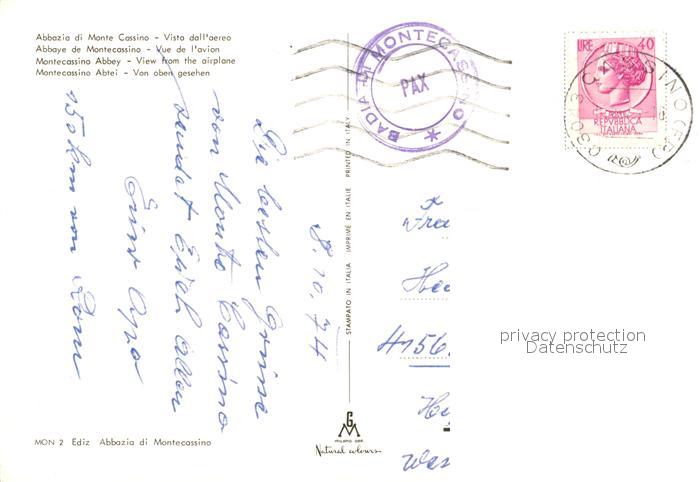 Abbazia di Monte Cassino - Vista dall'aereo
Abbaye de Montecassino - Vue de l'avion
Montecassino Abbey - View from the airplane
Montecassino Abtei - Von oben gesehen
BADIA DI MONTECASSINO *
PAX
LIRE 40
REPUBBLICA
ITALIANA
03043 CASSINO (FR)
8.10.74
Die besten Grüsse
von Monte Cassino
sendet Euch allen
Euer Opa
150 km von Rom
STAMPATO IN ITALIA IMPRIMÉ EN ITALIE PRINTED IN ITALY
4156
privacy protection
Datenschutz
MON 2 Ediz Abbazia di Montecassino
GM
MILANO
Natural colours